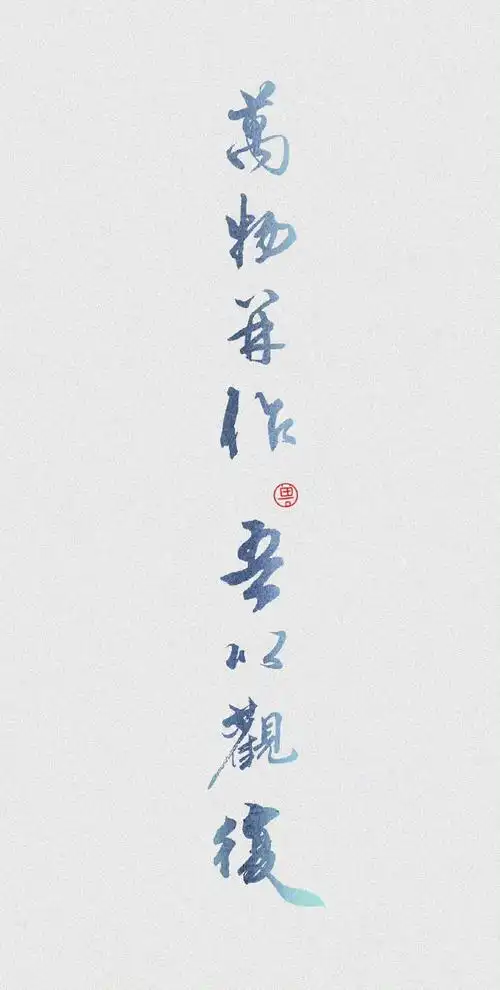 萬物并作
吾以觀復